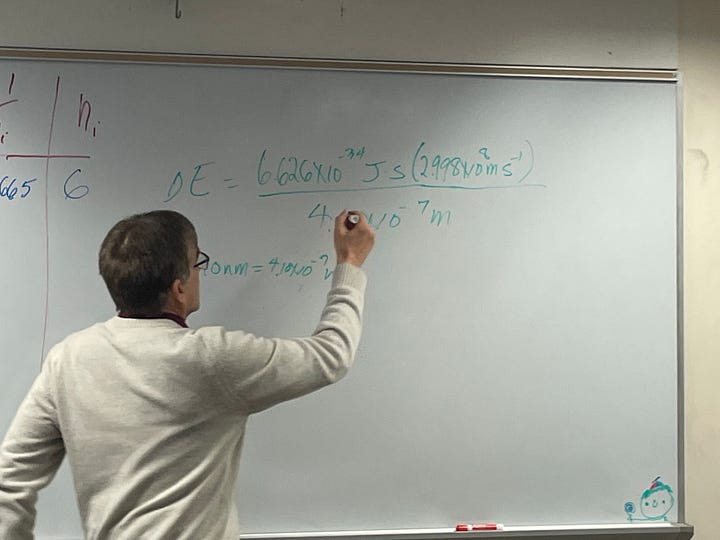 1 n_i
i
665 6
ΔE = 6.626x10^-34 J s (2.998x10^8 m s^-1)
4. x10^-7 m
10nm = 4.10x10^-7